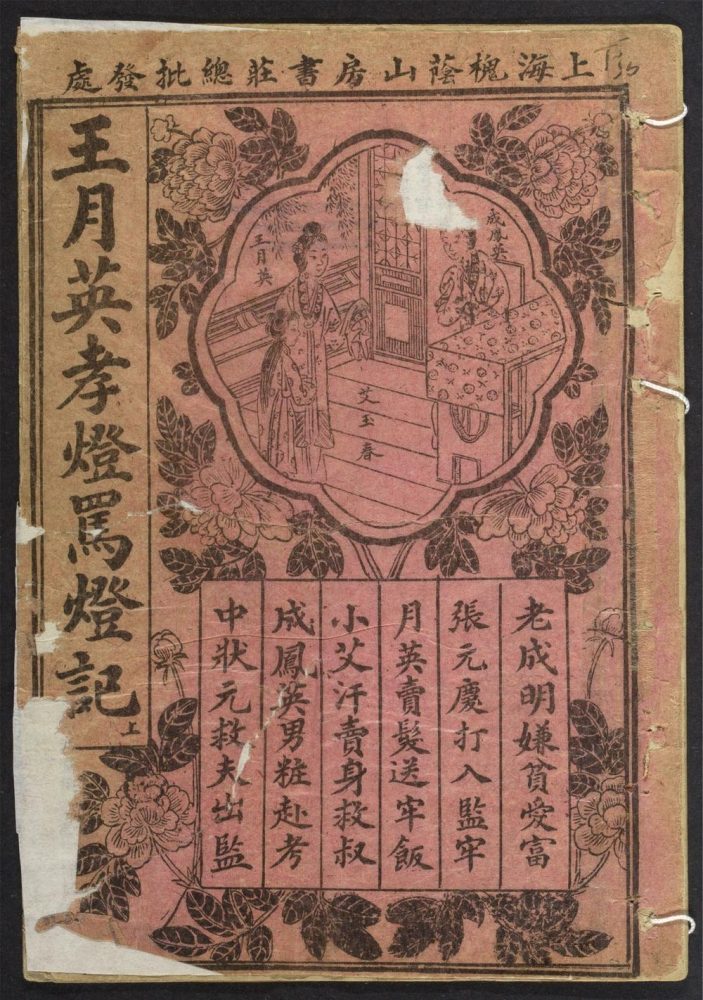 上海槐蔭山房書莊總批發處
成鳳英
王月英
艾玉春
老成明嫌貧愛富
張元慶打入監牢
月英賣髮送牢飯
小艾汗賣身救叔
成鳳英男粧赴考
中狀元救夫出監
王月英孝燈罵燈記
上